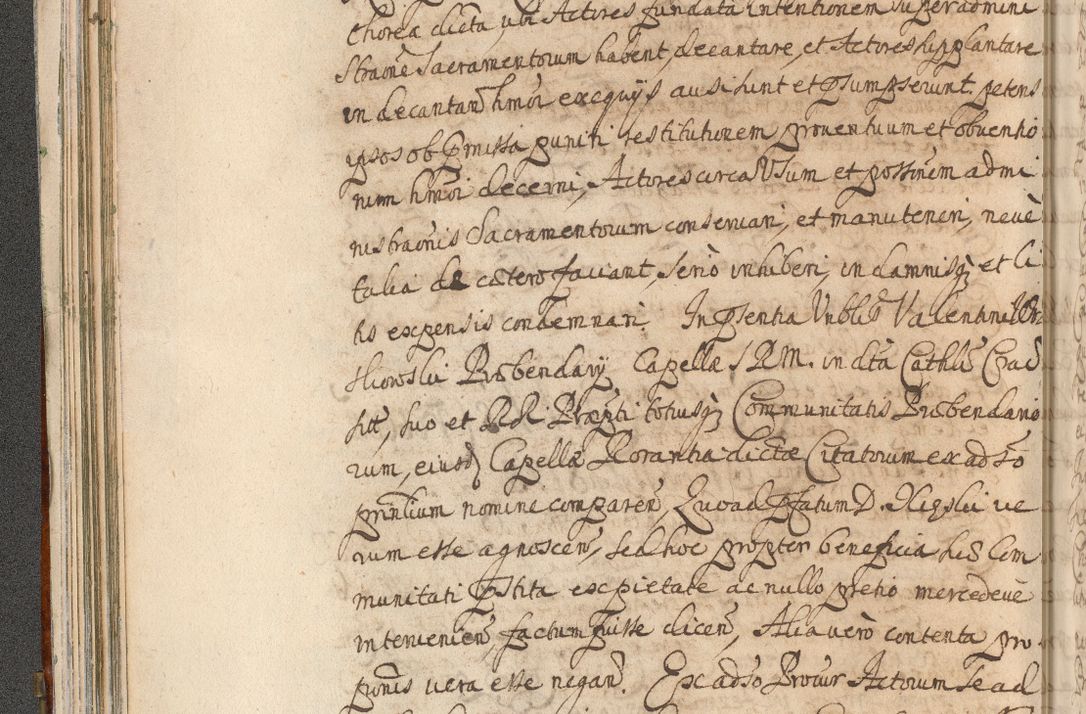 Chorea dicta ubi Actores fundata intentionem super admini
straōne Sacramentorum habent, decantare, et Actores supplantare
in decantan̄ hmōi exequijs ausi sunt et p̄sumpserunt. petens
ipsos ob p̄missa puniri restitutionem proventuum et obventio
num hmōi decerni, Actores circa Usum et possīnem admi
nistraōnis Sacramentorum conservari, et manuteneri, nevè
talia de cœtero faciant, seriò inhiberi, in damnisq̄ et li
tis expensis condemnari. In p̄sentia Vnblis Valentini
Probendarij Capellæ S.R.M. in dta Cathli Crac̄
sitt, suo et RR. Præpti totiusq̄ Communitatis Probendario
rum, eiusd̄ Capellæ Rorantha dictæ Citatorum ex adso
prin̄lium nomine comparen̄, Quoad p̄fatum D. ve
rum esse agnoscen̄, sed hoc propter beneficia sùs Com
munitati p̄stita ex pietate ac nullo pretio mercedevè
intervenien̄, factum fuisse dicen̄, Alia verò contenta pro
ponis vera esse negan̄. Ex adso Procur Actorum se ad